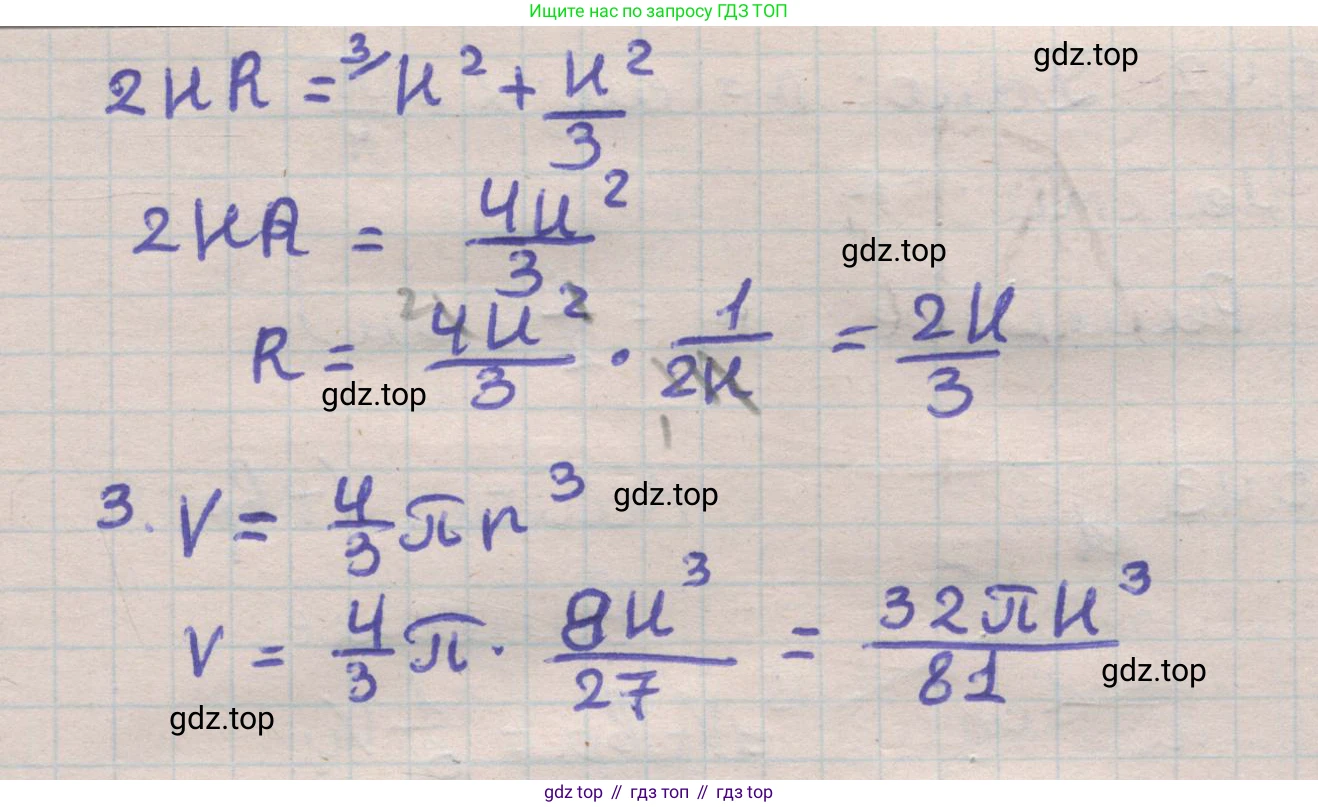 Ищите нас по запросу ГДЗ ТОП
gdz.top
2HR = ³⁄ H² + H²/3
2HR = 4H²/3
gdz.top
R = 4H²/3 · 1/2H = 2H/3
2
1
gdz.top
3. V = 4/3 πr³
gdz.top
V = 4/3 π · 8H³/27 = 32πH³/81
gdz.top
gdz.top
gdz top // гдз топ // гдз top